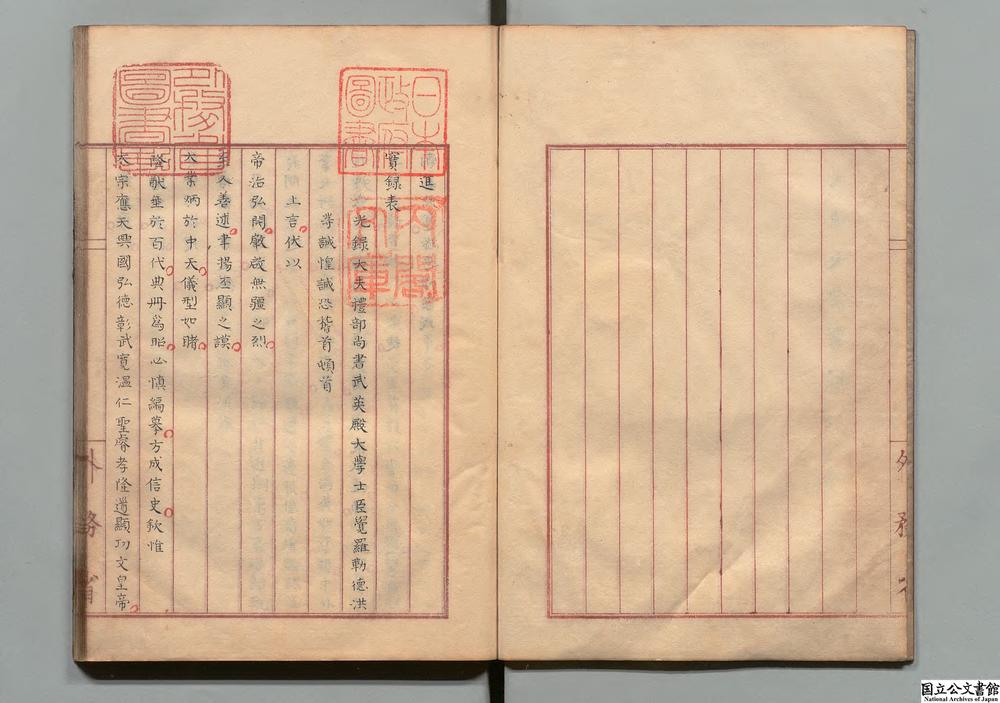 進
實録表
光録大夫禮部尚書武英殿大學士臣覺羅勒德洪
等誠惶誠恐稽首頓首
上言伏以
帝治弘開啟無疆之烈
善述聿揚丕顯之謨
大業炳於中天儀型如睹
隆猷垂於百代典册爲昭心慎編摹方成信史欽惟
太宗應天興國弘德彰武寛温仁聖睿孝隆道顯功文皇帝
日本政府圖書
外務省圖書記
内閣文庫
外務省
外務省
国立公文書館
National Archives of Japan